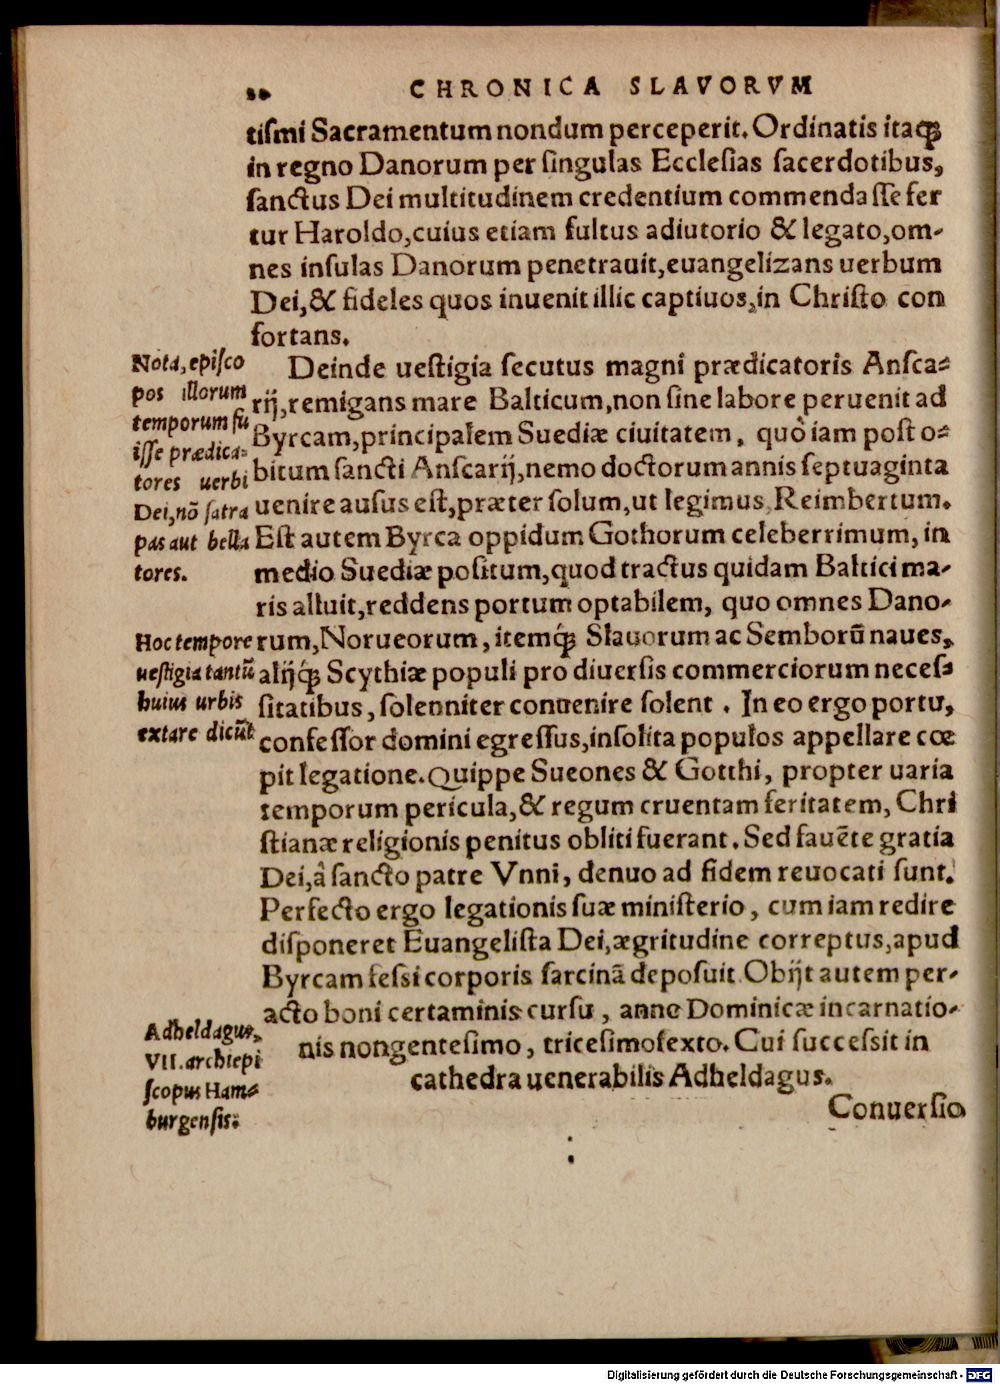 CHRONICA SLAVORVM
tiſmi Sacramentum nondum perceperit. Ordinatis itaq́;
in regno Danorum per ſingulas Eccleſias ſacerdotibus,
ſanctus Dei multitudinem credentium commendaſſe fer
tur Haroldo, cuius etiam fultus adiutorio & legato, om-
nes inſulas Danorum penetrauit, euangelizans uerbum
Dei, & fideles quos inuenit illic captiuos, in Chriſto con
fortans.
Deinde ueſtigia ſecutus magni prædicatoris Anſca-
rij, remigans mare Balticum, non ſine labore peruenit ad
Byrcam, principalem Suediæ ciuitatem, quò iam poſt o-
bitum ſancti Anſcarij, nemo doctorum annis ſeptuaginta
uenire auſus eſt, præter ſolum, ut legimus, Reimbertum.
Eſt autem Byrca oppidum Gothorum celeberrimum, in
medio Suediæ poſitum, quod tractus quidam Baltici ma-
ris alluit, reddens portum optabilem, quo omnes Dano-
rum, Norueorum, itemq́; Slauorum ac Semborū naues,
alijq́; Scythiæ populi pro diuerſis commerciorum neceſ-
ſitatibus, ſolenniter conuenire ſolent. In eo ergo portu,
confeſſor domini egreſſus, inſolita populos appellare cœ
pit legatione. Quippe Sueones & Gotthi, propter uaria
temporum pericula, & regum cruentam feritatem, Chri
ſtianæ religionis penitus obliti fuerant. Sed fauēte gratia
Dei, â ſancto patre Vnni, denuo ad fidem reuocati ſunt.
Perfecto ergo legationis ſuæ miniſterio, cum iam redire
diſponeret Euangeliſta Dei, ægritudine correptus, apud
Byrcam feſsi corporis ſarcinā depoſuit. Obijt autem per-
acto boni certaminis curſu, anno Dominicæ incarnatio-
nis nongenteſimo, triceſimoſexto. Cui ſucceſsit in
cathedra uenerabilis Adheldagus.
Conuerſio
Nota, epiſco
pos illorum
temporum fu
iſſe prædica-
tores uerbi
Dei, nō ſatra
pas aut bella
tores.
Hoc tempore
ueſtigia tantū
huius urbis
extare dicūt
Adheldagus,
VII. archiepi
ſcopus Ham-
burgenſis.
Digitalisierung gefördert durch die Deutsche Forschungsgemeinschaft - DFG